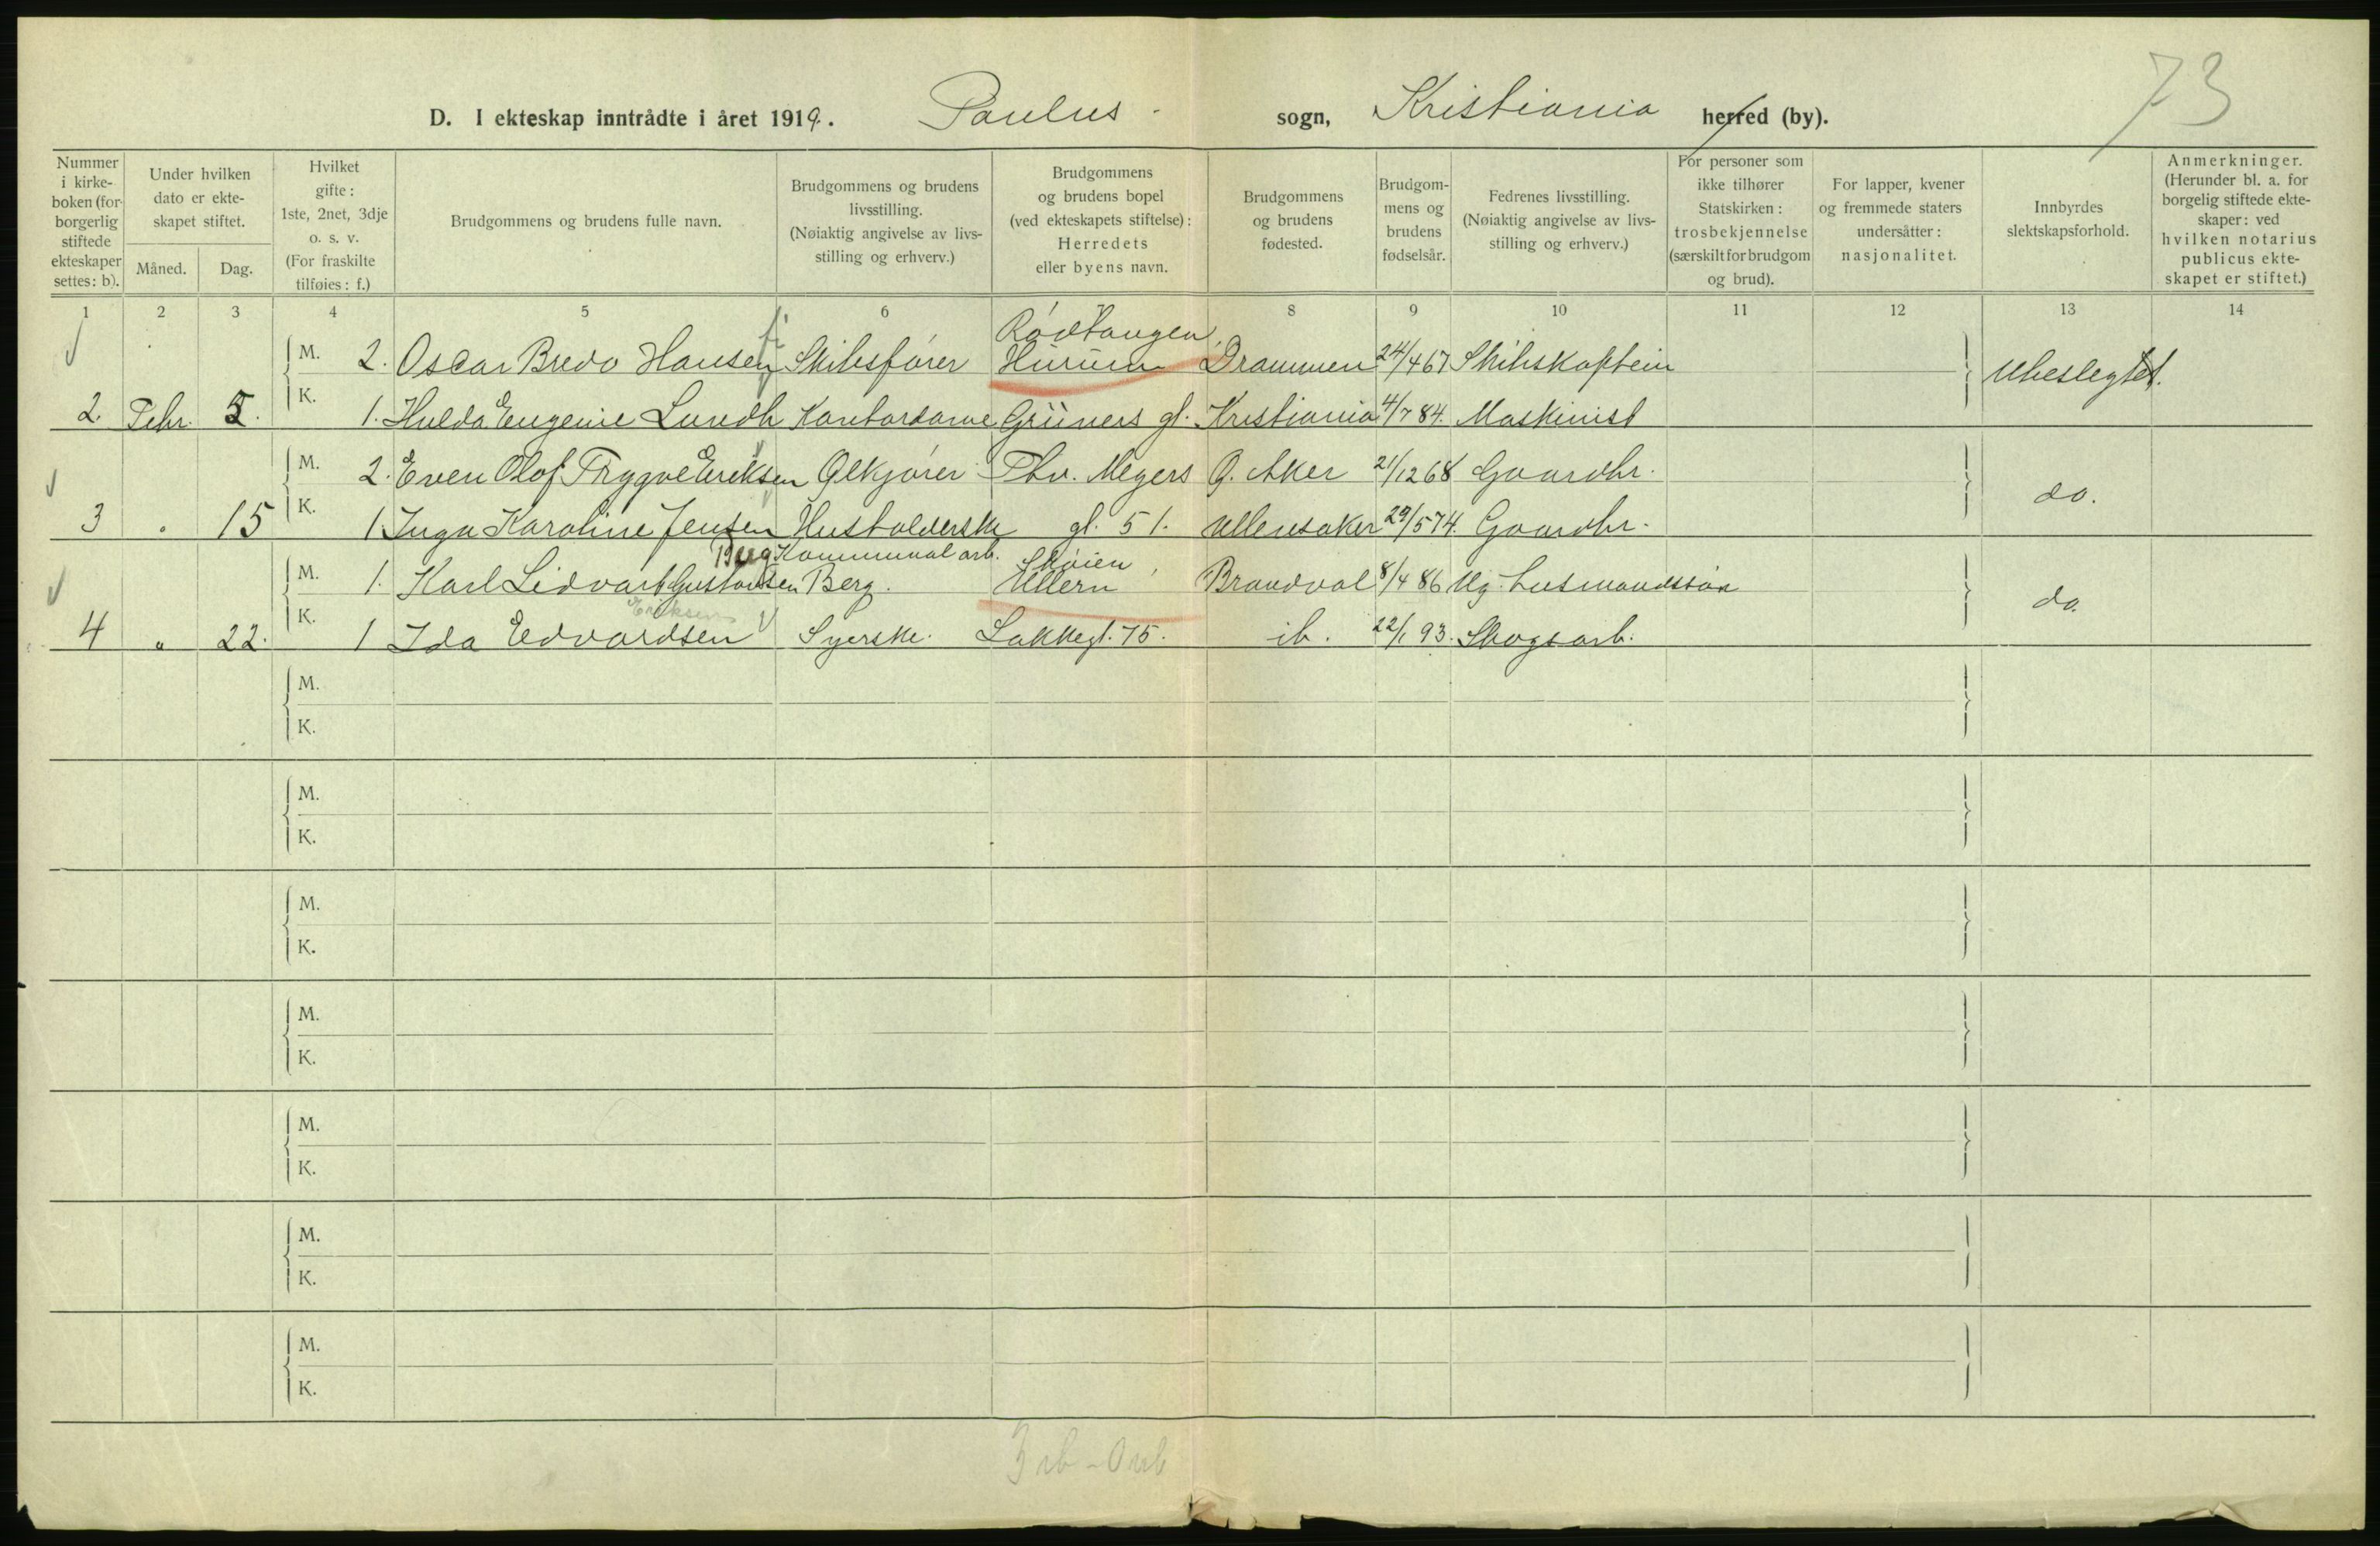 73
D. I ekteskap inntrådte i året 1919. Paulus sogn, Kristiania herred (by).
Nummer i kirkeboken (for borgerlig stiftede ekteskaper settes: b).
Under hvilken dato er ekteskapet stiftet.
Måned. Dag.
Hvilket gifte: 1ste, 2net, 3dje o. s. v. (For fraskilte tilføies: f.)
Brudgommens og brudens fulle navn.
Brudgommens og brudens livsstilling. (Nøiaktig angivelse av livsstilling og erhverv.)
Brudgommens og brudens bopel (ved ekteskapets stiftelse): Herredets eller byens navn.
Brudgommens og brudens fødested.
Brudgommens og brudens fødselsår.
Fedrenes livsstilling. (Nøiaktig angivelse av livsstilling og erhverv.)
For personer som ikke tilhører Statskirken: trosbekjennelse (særskilt for brudgom og brud).
For lapper, kvener og fremmede staters undersåtter: nasjonalitet.
Innbyrdes slektskapsforhold.
Anmerkninger. (Herunder bl. a. for borgelig stiftede ekteskaper: ved hvilken notarius publicus ekteskapet er stiftet.)
1 2 3 4 5 6 7 8 9 10 11 12 13 14
Rødtangen,
M. 2. Oscar Bredo Hansen Skibsfører Hurum Drammen 24/4 67 Skibskaptein Ubeslegtet.
2 Febr. 5. K. 1. Hulda Eugenie Lundh Kontordame Grüners gt. Kristiania 4/7 84. Maskinist
M. 2. Even Olof Trygve Eriksen Ølkjører Thv. Meyers Ø. Aker 21/12 68 Gaardbr. do.
3 " 15 K. 1. Inga Karoline Jensen Husholderske gt. 51. Ullensaker 29/5 74. Gaardbr.
Berg Kommunal arb. Skøien,
M. 1. Karl Lidvart Gustavsen Berg. Ullern Brandval 8/4 86 Ug. husmandssøn do.
Eriksen
4 " 22. K. 1 Ida Edvardsen Syerske. Lakkegt. 75. ib. 22/1 93. Skogsarb.
M.
K.
M.
K.
M.
K.
M.
K.
M.
K.
M.
K.
M.
K.